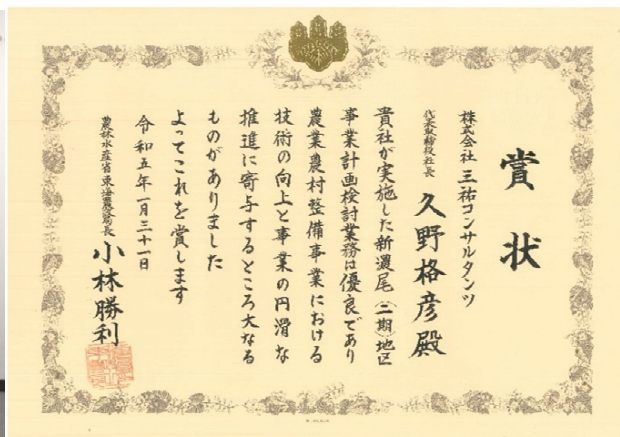 賞状
株式会社 三祐コンサルタンツ
代表取締役社長 久野格彦殿
貴社が実施した新濃尾(二期)地区
事業計画検討業務は優良であり
農業農村整備事業における
技術の向上と事業の円滑な
推進に寄与するところ大なる
ものがありました
よってこれを賞します
令和五年一月三十一日
農林水産省東海農政局長 小林勝利